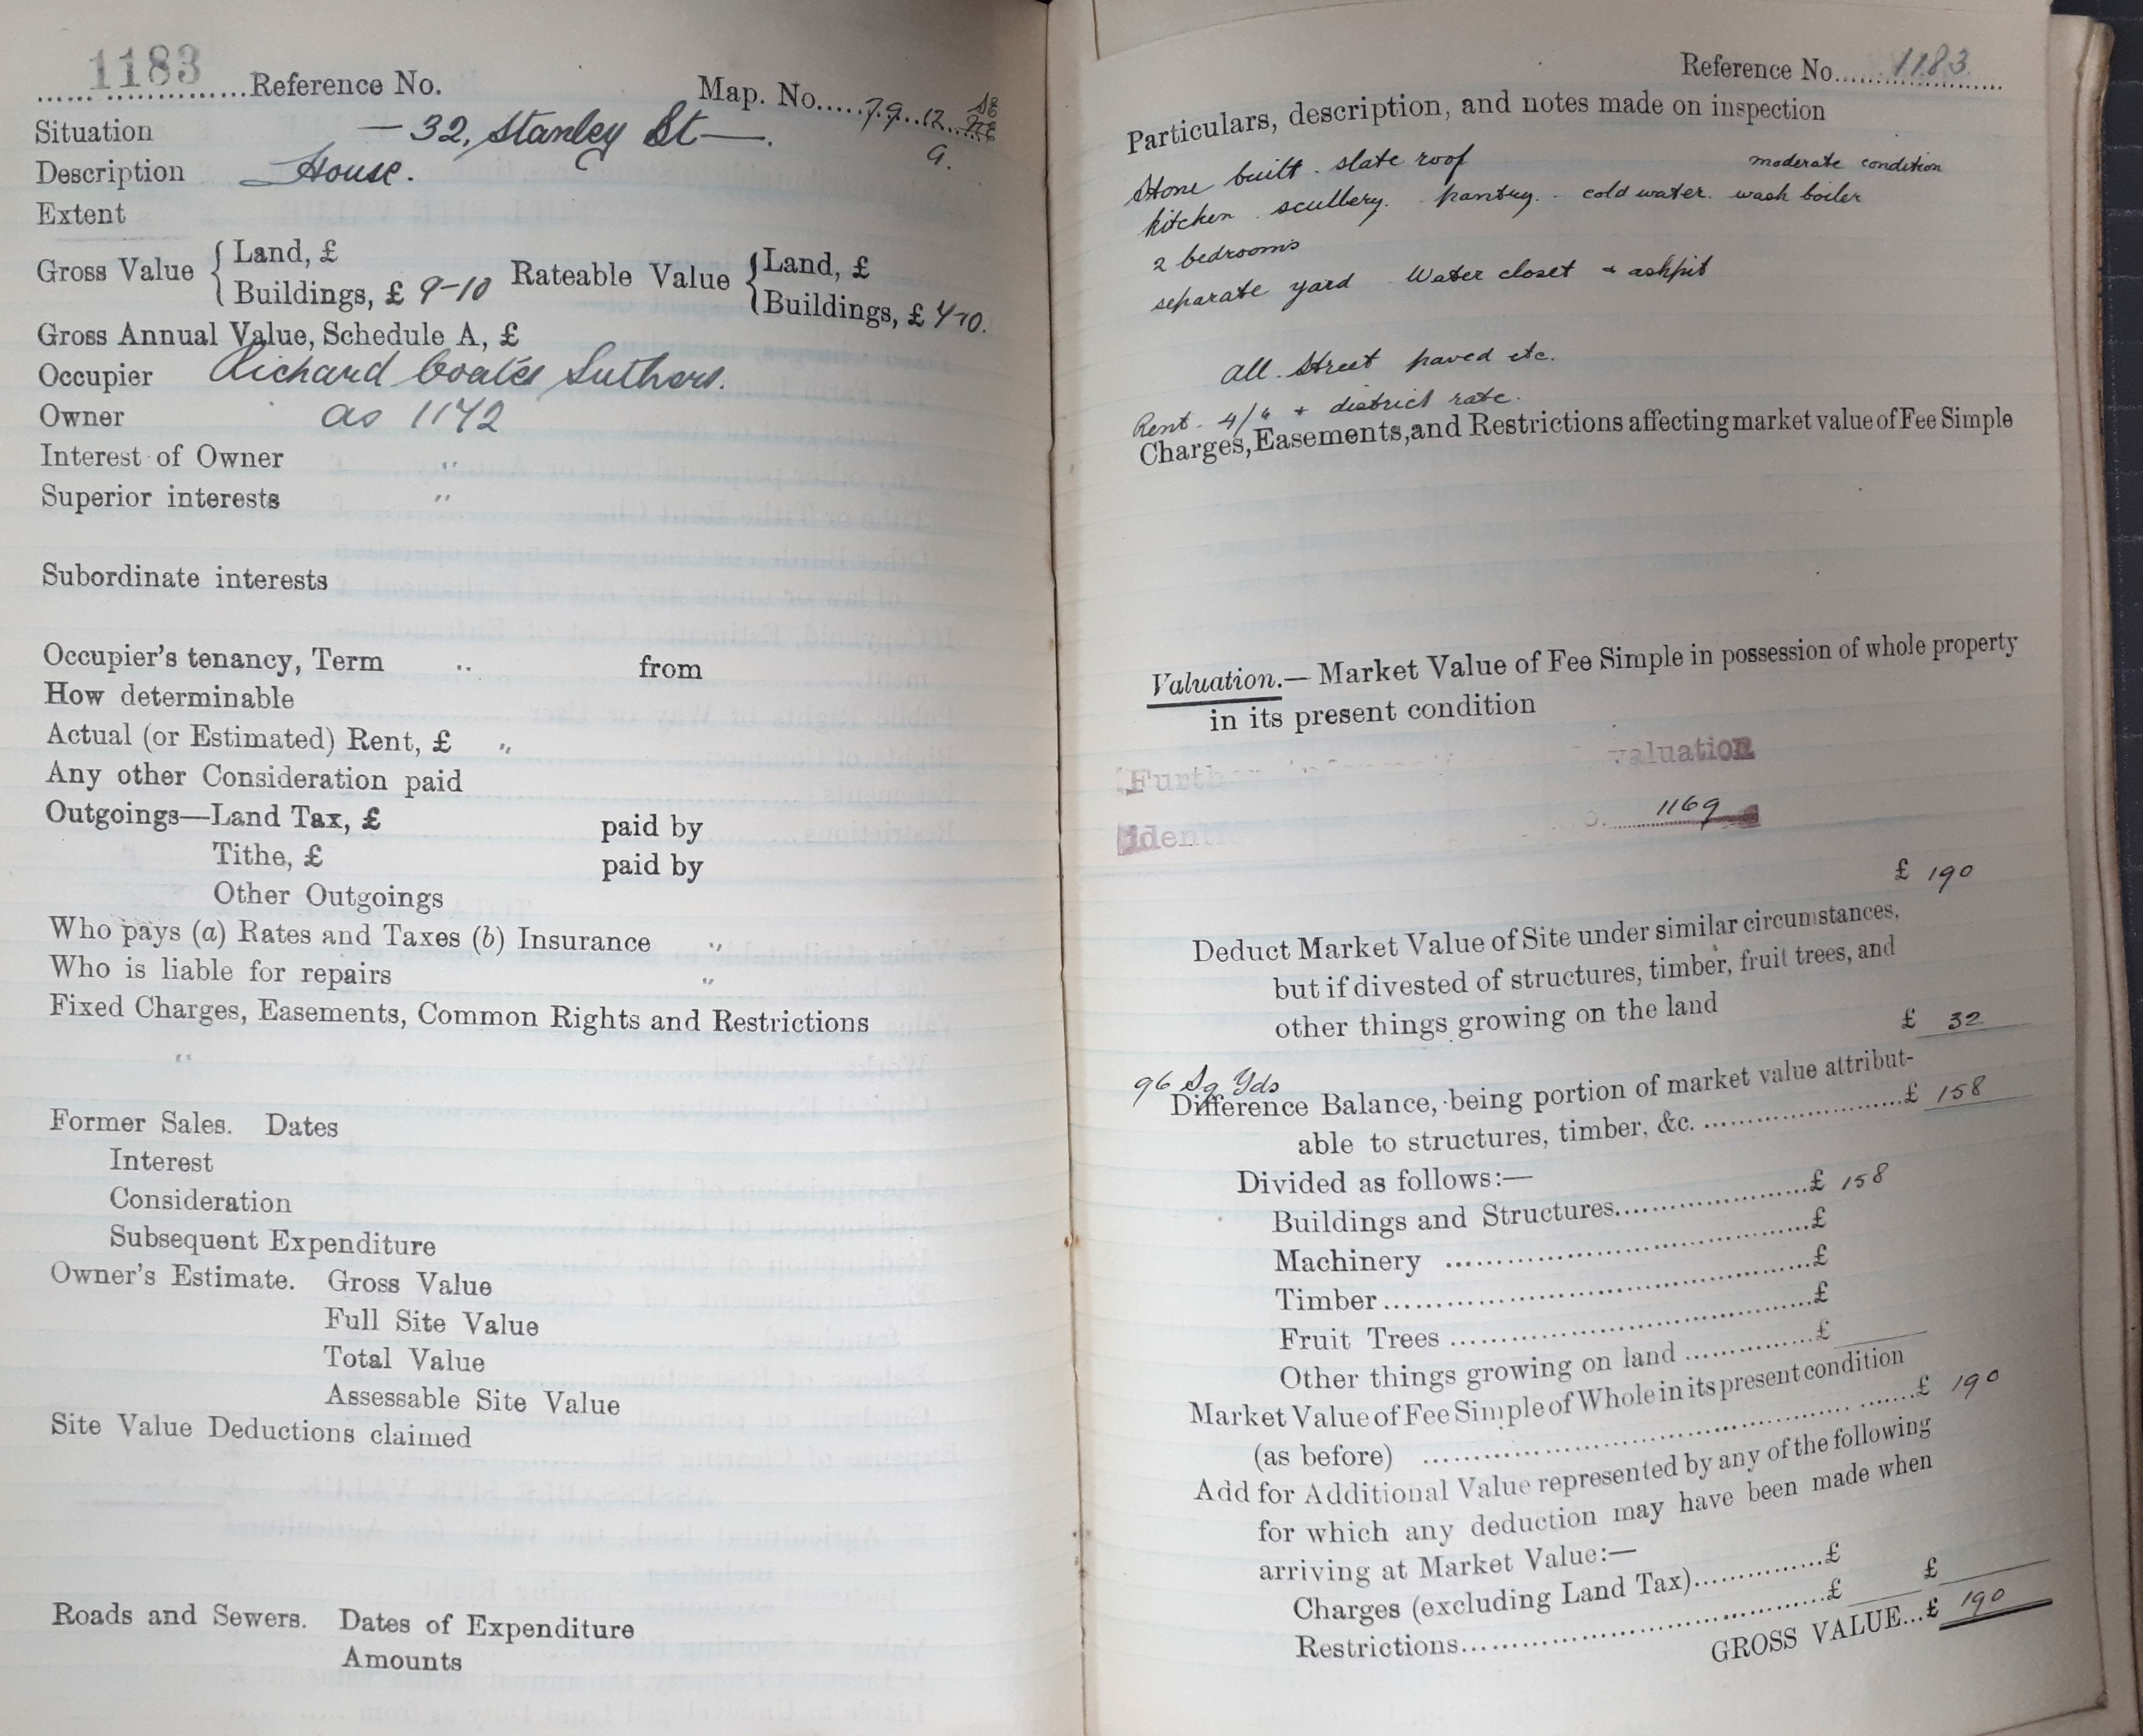 1183 Reference No. Map. No. 79. 12. SE
G.
Situation — 32, Stanley St —.
Description House.
Extent
Gross Value { Land, £ Rateable Value { Land, £
Buildings, £ 9-10 Buildings, £
Gross Annual Value, Schedule A, £
Occupier Richard Coates Suthers.
Owner as 1172
Interest of Owner "
Superior interests "
Subordinate interests
Occupier's tenancy, Term " from
How determinable
Actual (or Estimated) Rent, £ "
Any other Consideration paid
Outgoings—Land Tax, £ paid by
Tithe, £ paid by
Other Outgoings
Who pays (a) Rates and Taxes (b) Insurance "
Who is liable for repairs "
Fixed Charges, Easements, Common Rights and Restrictions
"
Former Sales. Dates
Interest
Consideration
Subsequent Expenditure
Owner's Estimate. Gross Value
Full Site Value
Total Value
Assessable Site Value
Site Value Deductions claimed
Roads and Sewers. Dates of Expenditure
Amounts
Reference No. 1183.
Particulars, description, and notes made on inspection
Stone built. slate roof moderate condition
kitchen. scullery. pantry. cold water. wash boiler
2 bedrooms
separate yard Water closet + ashpit
all. Street paved etc.
Rent. 4/6 + district rate.
Charges, Easements, and Restrictions affecting market value of Fee Simple
Valuation.— Market Value of Fee Simple in possession of whole property
in its present condition
Furth valuation
identi 1169
£ 190
Deduct Market Value of Site under similar circumstances,
but if divested of structures, timber, fruit trees, and
other things growing on the land £ 32
96 Sq Yds
Difference Balance, being portion of market value attribut-
able to structures, timber, &c. £ 158
Divided as follows:—
Buildings and Structures £ 158
Machinery £
Timber £
Fruit Trees £
Other things growing on land £
Market Value of Fee Simple of Whole in its present condition
(as before) £ 190
Add for Additional Value represented by any of the following
for which any deduction may have been made when
arriving at Market Value:—
Charges (excluding Land Tax) £
Restrictions £ £
GROSS VALUE...£ 190